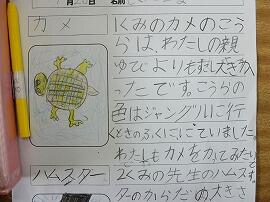 カメ
1くみのカメのこう
らは、わたしの親
ゆびよりもすこし大きか
ったです。こうらの
色はジャングルに行
くときのふくににていました。
わたしもカメをかってみたい
ハムスター
2くみの先生のハムス
ターのからだの大きさ